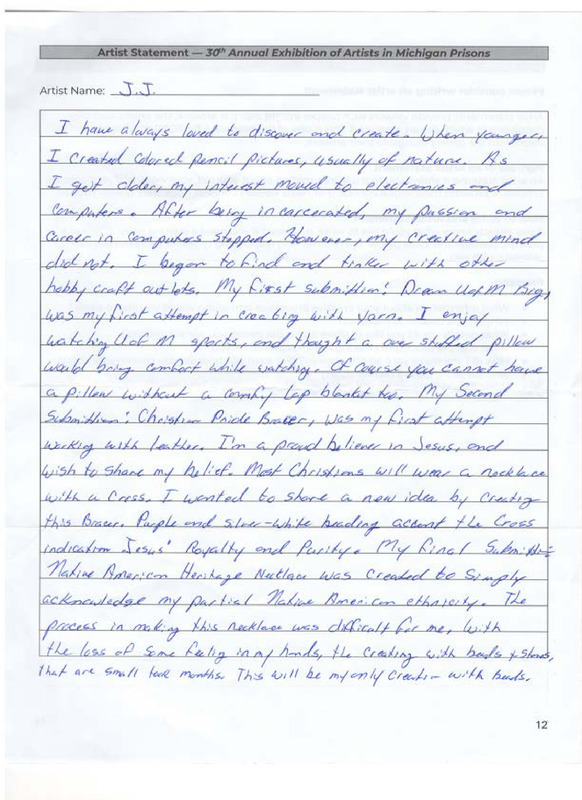 Artist Statement — 30th Annual Exhibition of Artists in Michigan Prisons
Artist Name: J.J.
I have always loved to discover and create. When younger,
I created colored pencil pictures, usually of nature. As
I got older, my interest moved to electronics and
computers. After being incarcerated, my passion and
career in computers stopped. However, my creative mind
did not. I began to find and tinker with other
hobby craft outlets. My first submittion: Dream UofM Big,
was my first attempt in creating with yarn. I enjoy
watching UofM sports, and thought a over stuffed pillow
would bring comfort while watching. Of course you cannot have
a pillow without a comfy lap blanket too. My Second
Submittion: Christian Pride Bracer, was my first attempt
working with leather. I'm a proud believer in Jesus, and
wish to share my belief. Most Christians will wear a necklace
with a Cross. I wanted to share a new idea by creating
this Bracer. Purple and silver-white beading accent the Cross
indication Jesus' Royalty and Purity. My Final Submittion
Native American Heritage Necklace was created to Simply
acknowledge my partial Native American ethnicity. The
process in making this necklace was difficult for me, with
the loss of some feeling in my hands, the creating with beads & stones,
that are small took months. This will be my only creation with beads.
12